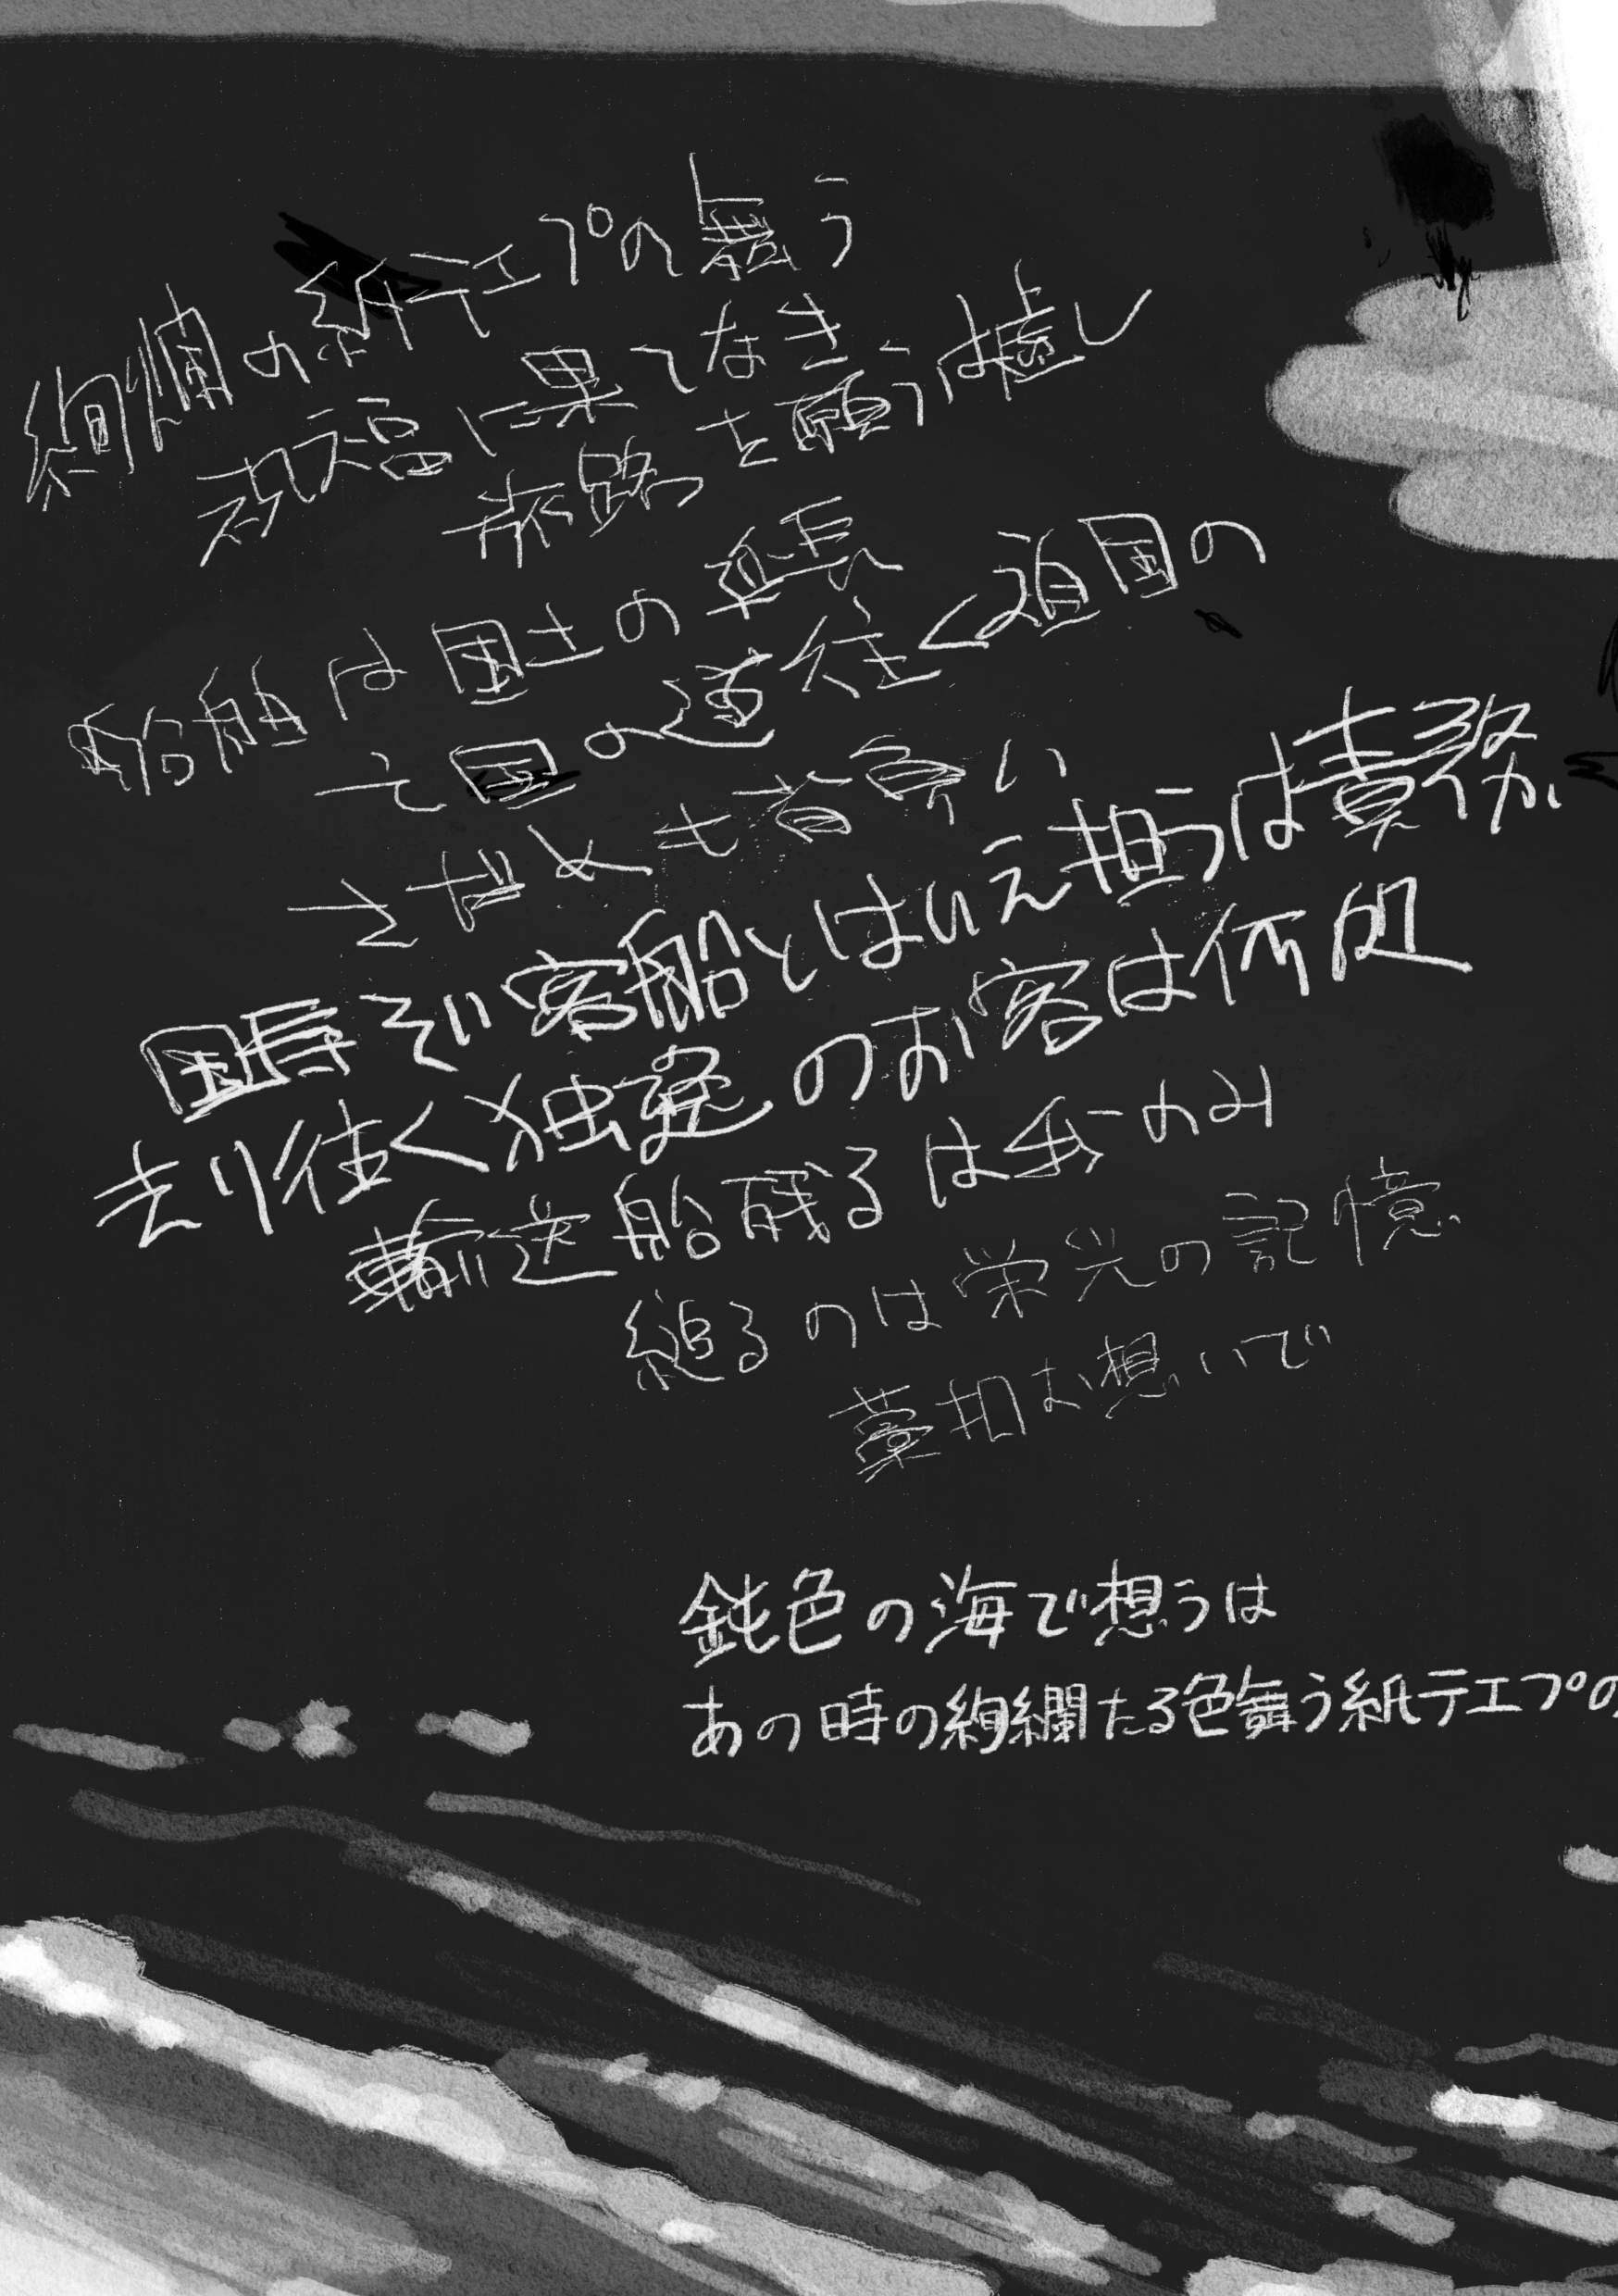 絢爛の紙テエプの舞う
祝福に果てなき
旅路を願うは嘘し
船舶は国土の延長
亡国の道往く
国の
さだめも背負い
客船とはいえ担うは責務
去り往く独逸のお客は何処
輸送船残るは我のみ
縋るのは栄光の記憶
藁和お想いで
鈍色の海で想うは
あの時の絢爛たる色舞う紙テエプの